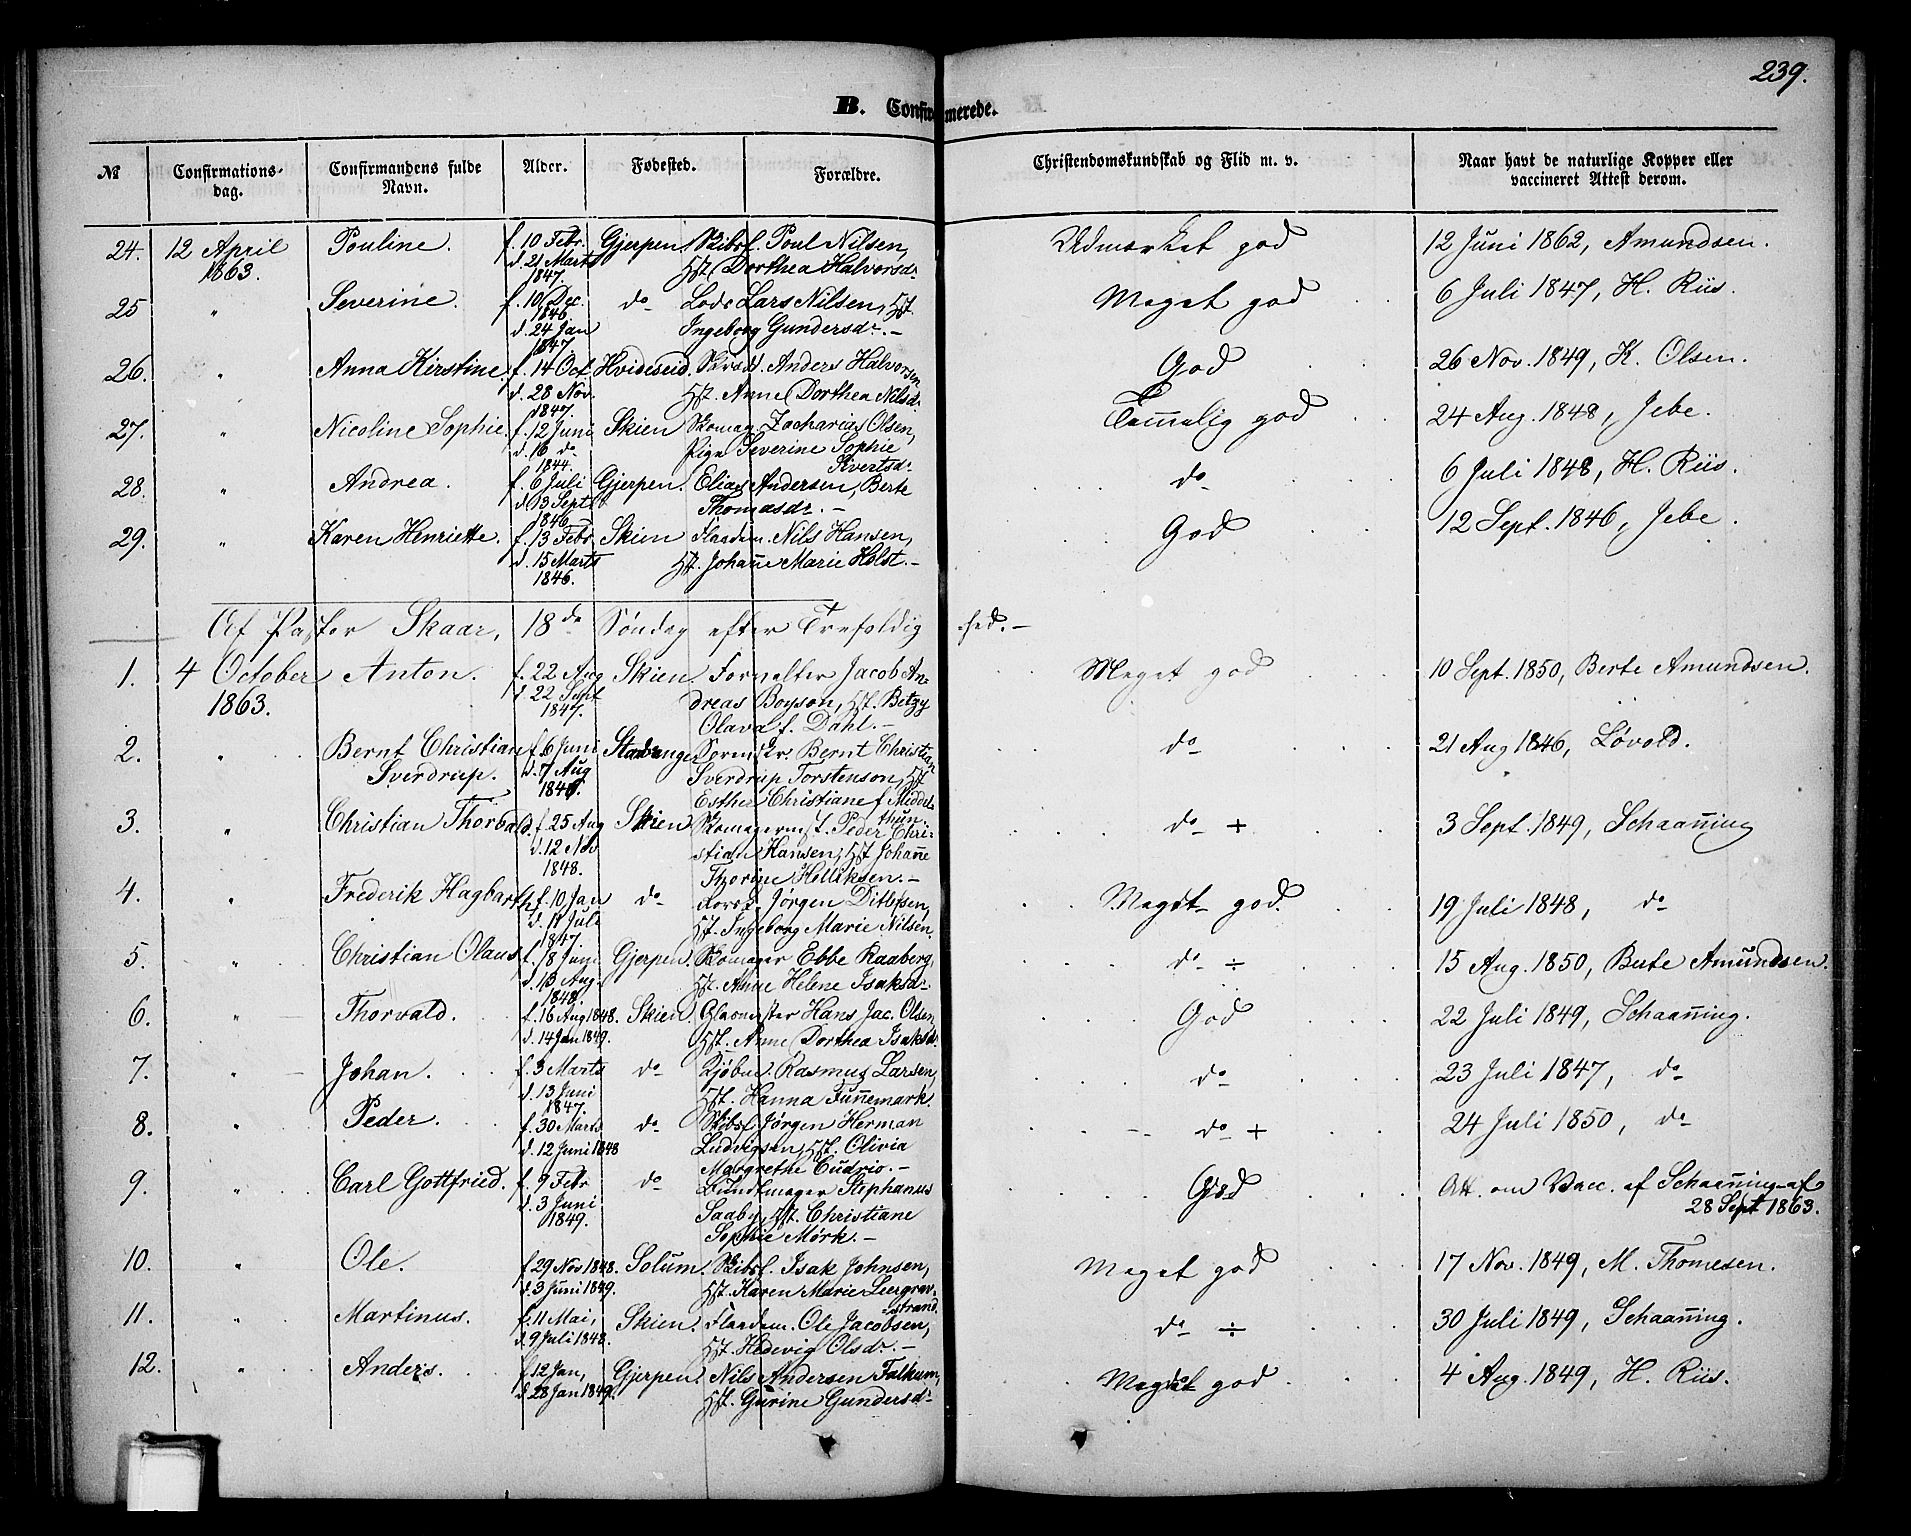 239.
B. Confirmerede.
№ Confirmations-dag. Confirmandens fulde Navn. Alder. Fødested. Forældre. Christendomskundskab og Flid m. v. Naar havt de naturlige Kopper eller vaccineret Attest derom.
24. 12 April Pouline. f. 10 Febr. Gjerpen. Skibsf. Poul Nilsen, Udmærket god 12 Juni 1862, Amundsen.
1863. d. 21 Marts Hst. Dorthea Halvorsdr
1847.
25 " Severine. f. 10 Dec. do Lods Lars Nilsen, Hst. Meget god 6 Juli 1847, H. Riis.
1846
d. 24 Jan Ingeborg Gundersdr. –
1847.
26. " Anna Kirstine. f. 14 Oct Hvideseid. Anders Halvorsen God 26 Nov. 1849, K. Olsen.
d. 28 Nov. Hst. Anne Dorthea Nilsd.
1847.
27. " Nicoline Sophie. f. 12 Juni Skien Skomag. Zacharias Olsen, Temelig god 24 Aug. 1848, Jebe.
d. 16 do Pige Severine Sophie
1844. Sivertsdr
28. " Andrea. f. 6 Juli Gjerpen. Elias Andersen, Berte do 6 Juli 1848, H. Riis.
d. 13 Sept Thomasdr. –
1846
29. " Karen Henriette. f. 13 Febr. Skien Flaadem. Nils Hansen, God 12 Sept. 1846, Jebe.
d. 15 Marts Hst. Johanne Marie Holst. –
1846.
Af Pastor Skaar, 18de Søndag efter Trefoldighed. –
1. 4 October Anton. f. 22 Aug Skien Forvalter Jacob An- Meget god 10 Sept. 1850, Berte Amundsen.
1863. d. 22 Sept dreas Boyson, Hst. Betzy
1847. Olava f. Dahl. –
2. " Bernt Christian f. 6 Juni Stavanger Bernt Christian do 21 Aug 1846, Løvold.
Sverdrup. d. 7 Aug Sverdrup Torstenson, Hst
Esther Christiane f Middel-
thun.
3. " Christian Thorvald. f. 25 Aug Skien Skomagermst. Peder Chri- do + 3 Sept. 1849, Schaaning
d. 12 Nov stian Hansen, Hst Johanne
1848. Thorine
4. " Frederik Hagbarth f. 10 Jan do Jørgen Ditlefsen, Meget god. 19 Juli 1848, do
d. 11 Juli Hst. Ingeborg Marie Nilsen.
1847.
5. " Christian Olaus f. 8 Juni Gjerpen. Skomager Ebbe Raaberg, do ÷ 15 Aug. 1850, Berte Amundsen.
d. 13 Aug. Hst. Anne Helene Isaksdr
1848.
6. " Thorvald. f. 16 Aug 1848. Skien. Hans Jac. Olsen, God 22 Juli 1849, Schaaning.
d. 14 Jan 1849. Hst. Anne Dorthea Isaksdr.
7. " Johan. f. 3 Marts do Kjøbmd. Rasmus Larsen, do 23 Juli 1847, do
d. 13 Juni Hst. Hanna Funnemark.
1847.
8. " Peder. f. 30 Marts do Skibsf Jørgen Herman do + 24 Juli 1850, do
d. 12 Juni 1848 Ludvigsen, Hst. Olivia
Margrethe Cudrio. –
9. " Carl Gottfried. f. 9 Febr do Bundtmager Stephanus God Att. om Vacc. af Schaaning af
d. 3 Juni Saaby, Hst. Christiane 28 Sept 1863.
1849. Sophie Mørk. –
10. " Ole. f. 29 Nov 1848. Solum. Skibsf. Isak Johnsen, Meget god 17 Nov. 1849, M. Thomesen.
d. 3 Juni 1849. Hst. Karen Marie
strand.
11. " Martinus. f. 11 Mai, Skien. Flaadem. Ole Jacobsen, do ÷ 30 Juli 1849, Schaaning.
d. 9 Juli 1848. Hst. Hedevig Olsdr. –
12. " Anders. f. 12 Jan, Gjerpen. Nils Andersen Falkum, Meget god 4 Aug. 1849, H. Riis.
d. 28 Jan 1849. Hst. Gurine Gundersdr –